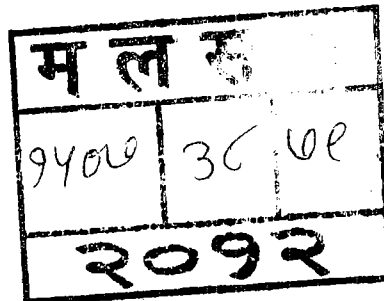 म ल स
१५०७ ३८ ७९
२०१२